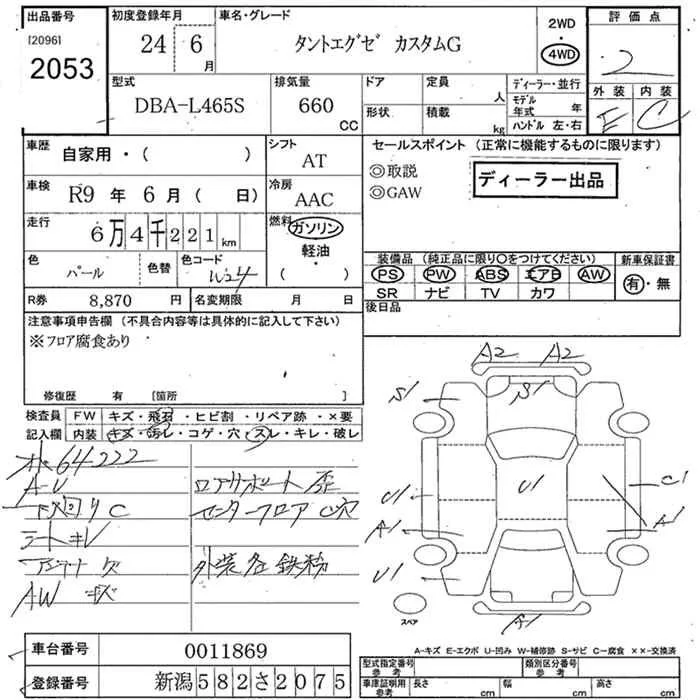 出品番号 初度登録年月 車名・グレード 2WD・4WD 評価点
[2096] 2053
24年6月 タントエグゼ カスタムG 2
型式 排気量 ドア 定員 人 ディーラー・並行 外装 内装
DBA-L465S 660 CC 形状 積載 kg モデル年式 年 ハンドル 左・右 E C
車歴 自家用・( ) シフト AT
車検 R9年6月( 日) 冷房 AAC
走行 6万4千221km 燃料 ガソリン・軽油・( )
色 パール 色替 色コード W24
R券 8,870円 名変期限 月 日
セールスポイント(正常に機能するものに限ります)
◎取説
◎GAW
ディーラー出品
装備品(純正品に限り○をつけてください) 新車保証書
PS PW ABS エアB AW 有・無
SR ナビ TV カワ
後日品
注意事項申告欄(不具合内容等は具体的に記入して下さい)
※フロア腐食あり
修復歴 有 [箇所 ]
検査員 FW キズ・飛石・ヒビ割・リペア跡・×要
記入欄 内装 キズ・汚レ・コゲ・穴・スレ・キレ・破レ
64222
A-U
下回りC
シートキレ
アンテナ欠
AW キズ
ロアサポート歪
センターフロアC穴
外装各鉄粉
A2 A2
S1 S1
U1 U1 C1
A1 A1
U1
A1
スペア
A-キズ E-エクボ U-凹み W-補修跡 S-サビ C-腐食 ××-交換済
車台番号 0011869
登録番号 新潟582さ2075
型式指定番号 参考 類別区分番号 参考
車庫証明用 参考 長さ cm 幅 cm 高さ cm